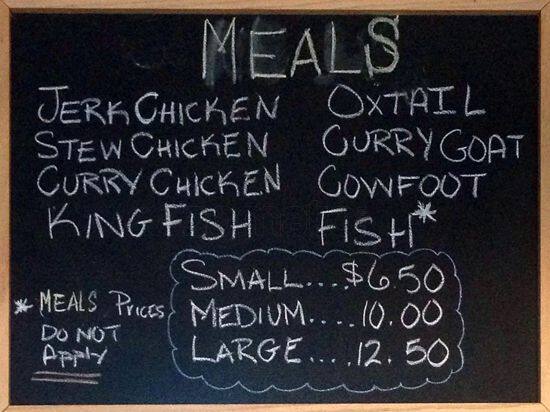 MEALS
JERK CHICKEN
STEW CHICKEN
CURRY CHICKEN
KING FISH
OXTAIL
CURRY GOAT
COWFOOT
FISH*
SMALL....$6.50
MEDIUM.....10.00
LARGE....12.50
* MEALS Prices
DO NOT
Apply